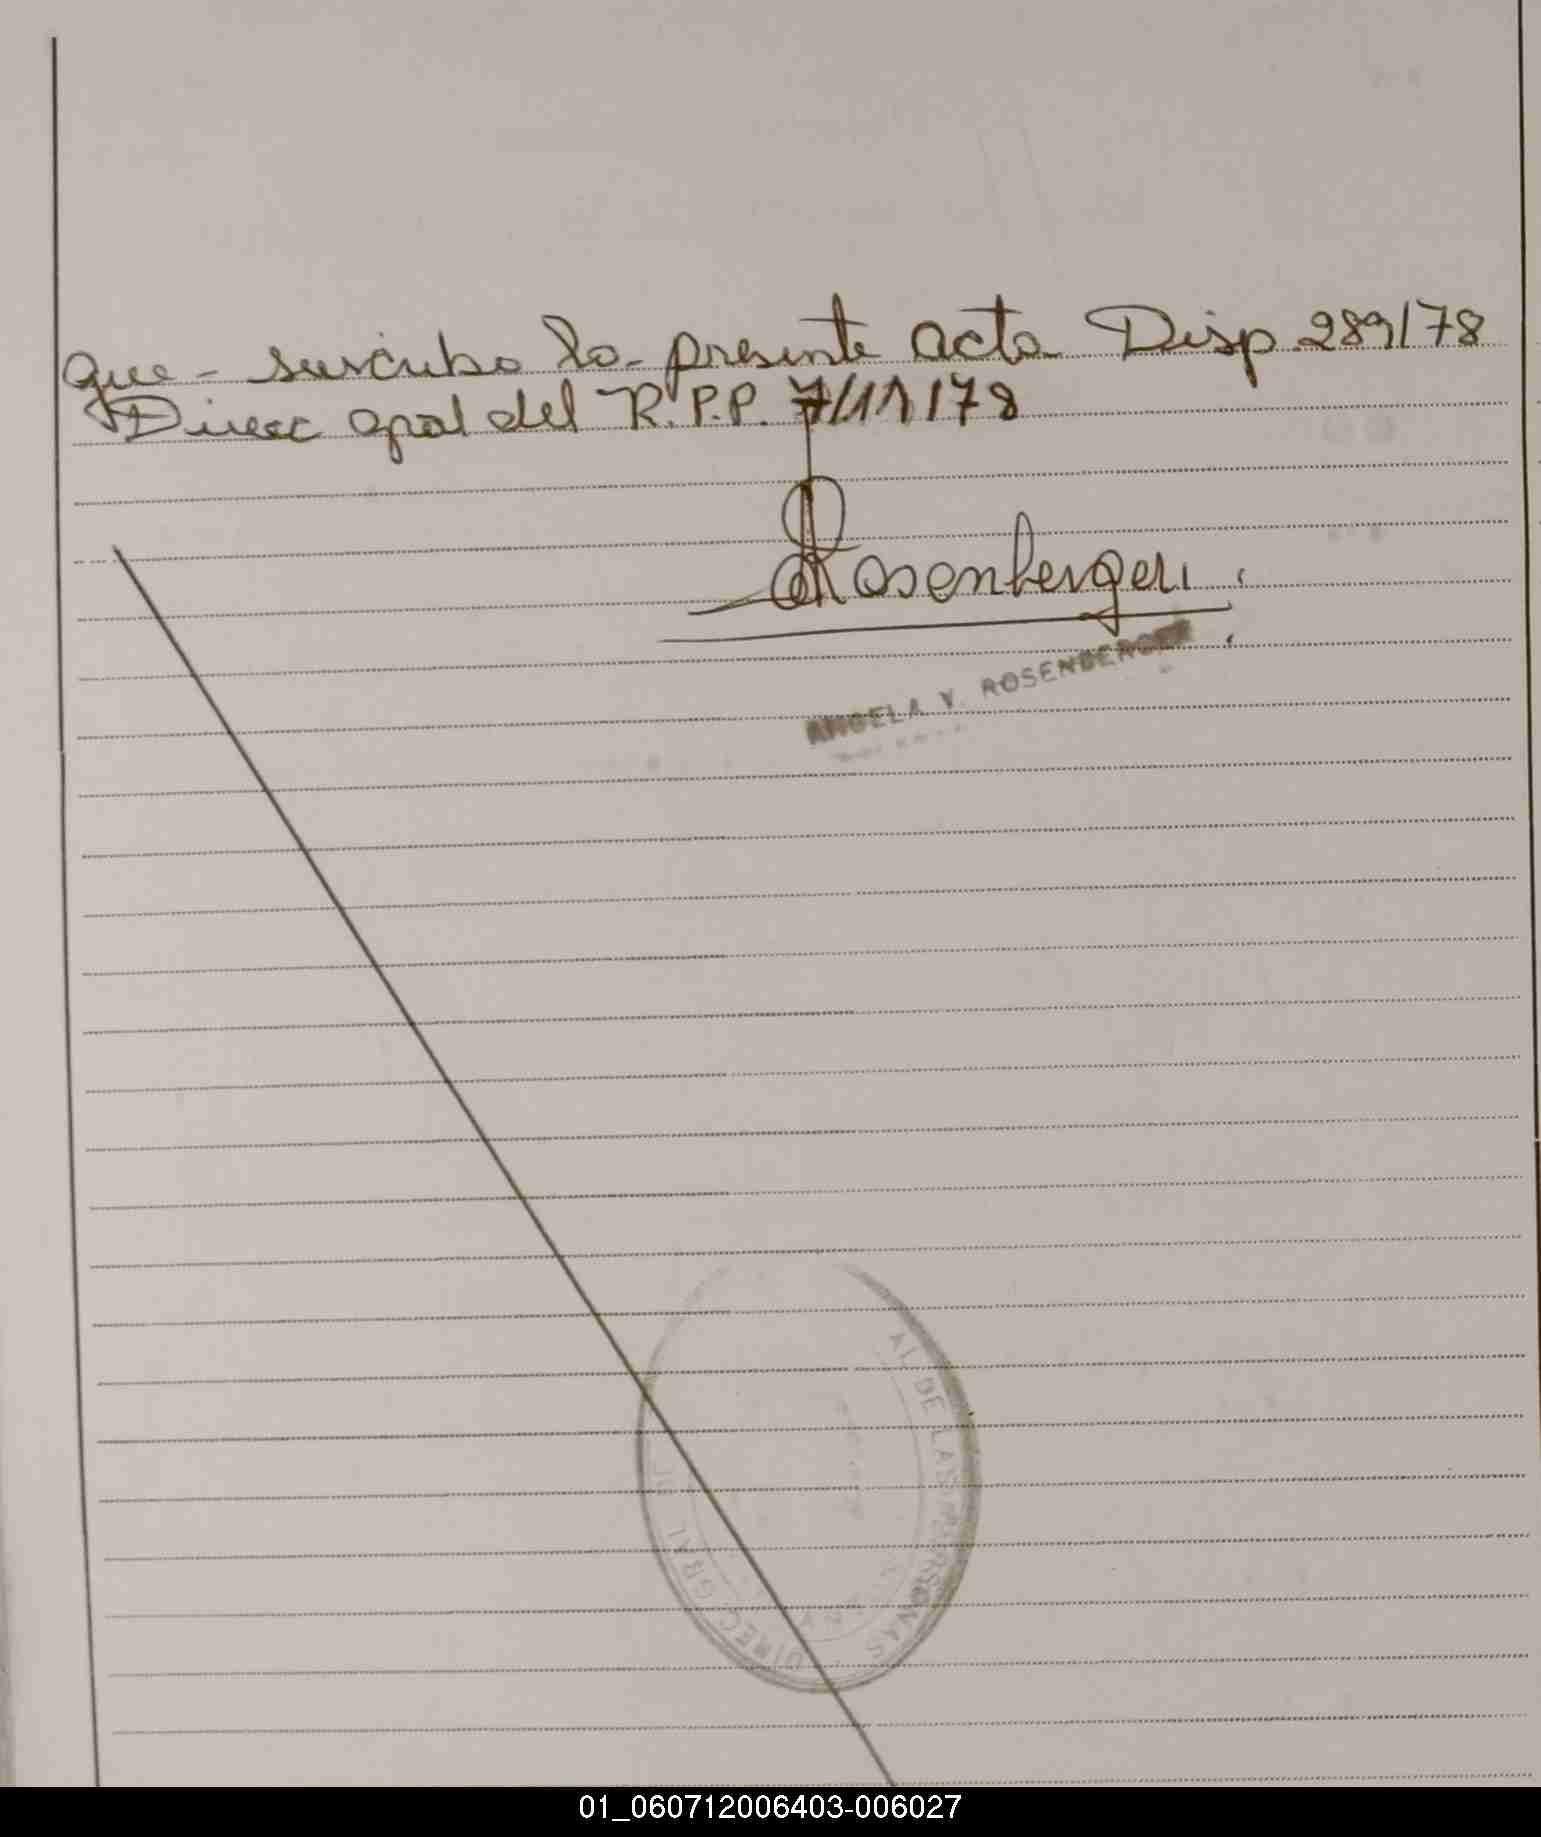 que - suscribo la presente acta Disp. 289/78
Direcc gral del R.P.P. 7/11/78
Rosenberger
ANGELA V. ROSENBERGER
DIREC GRAL
AL DE LAS PERSONAS
01_060712006403-006027